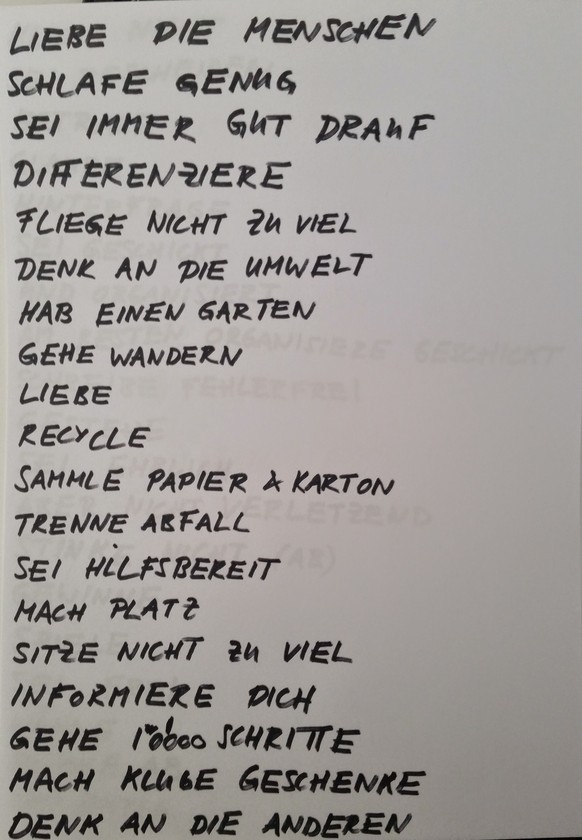 LIEBE DIE MENSCHEN
SCHLAFE GENUG
SEI IMMER GUT DRAUF
DIFFERENZIERE
FLIEGE NICHT ZU VIEL
DENK AN DIE UMWELT
HAB EINEN GARTEN
GEHE WANDERN
LIEBE
RECYCLE
SAMMLE PAPIER & KARTON
TRENNE ABFALL
SEI HILFSBEREIT
MACH PLATZ
SITZE NICHT ZU VIEL
INFORMIERE DICH
GEHE 10'000 SCHRITTE
MACH KLUGE GESCHENKE
DENK AN DIE ANDEREN